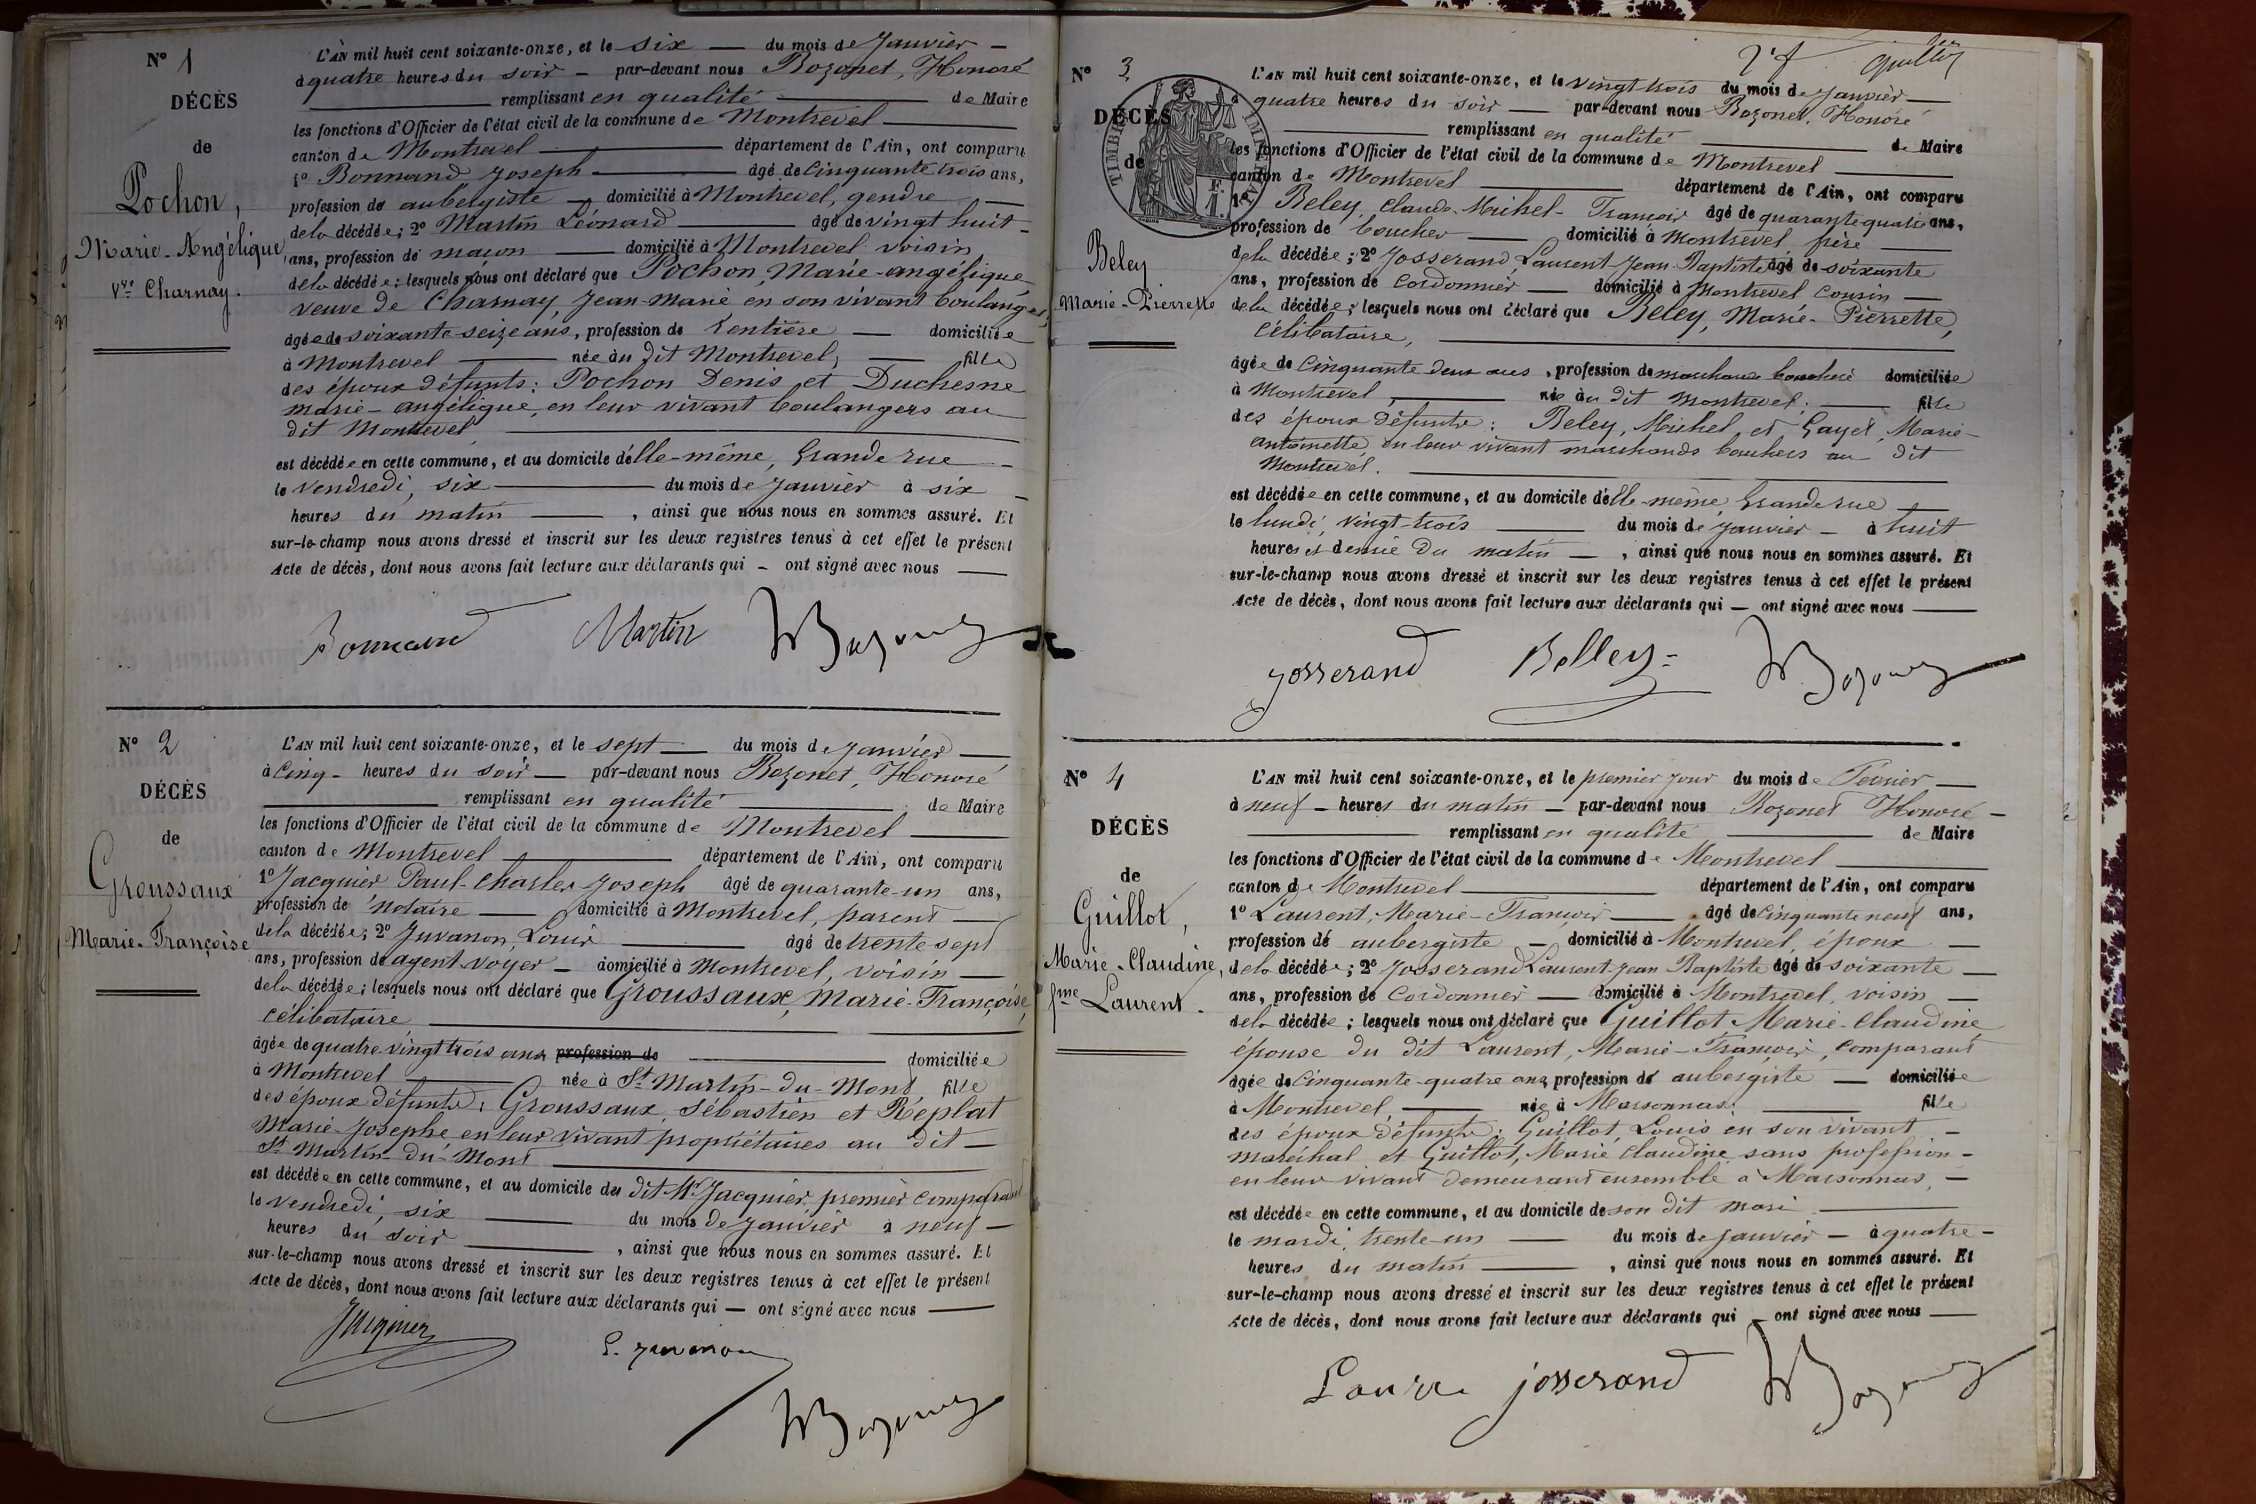 N° 1
DÉCÈS
de
Pochon,
Marie-Angélique,
Vve Charnay.
L'AN mil huit cent soixante-onze, et le six — du mois de Janvier —
à quatre heures du soir — par-devant nous Bozonet, Honoré
remplissant en qualité — de Maire
les fonctions d'Officier de l'état civil de la commune de Montrevel
canton de Montrevel — département de l'Ain, ont comparu
1° Bonnand Joseph — âgé de cinquante trois ans,
profession de aubergiste — domicilié à Montrevel, gendre —
de la décédée; 2° Martin Léonard — âgé de vingt huit —
ans, profession de maçon — domicilié à Montrevel voisin
de la décédée; lesquels nous ont déclaré que Pochon, Marie-angélique
veuve de Charnay, Jean-Marie en son vivant boulanger,
âgée de soixante-seize ans, profession de rentière — domiciliée
à Montrevel — née au dit Montrevel, — fille
des époux défunts: Pochon Denis et Duchesne
marie-angélique, en leur vivant boulangers au
dit Montrevel
est décédée en cette commune, et au domicile d'elle-même, Grande rue —
le vendredi, six — du mois de Janvier à six —
heures du matin —, ainsi que nous nous en sommes assuré. Et
sur-le-champ nous avons dressé et inscrit sur les deux registres tenus à cet effet le présent
Acte de décès, dont nous avons fait lecture aux déclarants qui — ont signé avec nous —
Bonnand Martin Bozonet
N° 2
DÉCÈS
de
Groussaux
Marie-Françoise
L'AN mil huit cent soixante-onze, et le sept — du mois de Janvier —
à cinq — heures du soir — par-devant nous Bozonet, Honoré
remplissant en qualité — de Maire
les fonctions d'Officier de l'état civil de la commune de Montrevel —
canton de Montrevel — département de l'Ain, ont comparu
1° Jacquier Paul-Charles-Joseph âgé de quarante-un ans,
profession de notaire — domicilié à Montrevel, parent —
de la décédée; 2° Juvanon, Louis — âgé de trente-sept
ans, profession de agent-voyer — domicilié à Montrevel, voisin —
de la décédée; lesquels nous ont déclaré que Groussaux, Marie-Françoise,
célibataire,
âgée de quatre vingt trois ans profession de — domiciliée
à Montrevel — née à St Martin-du-Mont, fille
des époux défunts: Groussaux, Sébastien et Réplat
Marie-Josephe en leur vivant propriétaires au dit —
St Martin-du-Mont
est décédée en cette commune, et au domicile du dit Mr Jacquier, premier comparant
le vendredi, six — du mois de Janvier à neuf —
heures du soir —, ainsi que nous nous en sommes assuré. Et
sur-le-champ nous avons dressé et inscrit sur les deux registres tenus à cet effet le présent
Acte de décès, dont nous avons fait lecture aux déclarants qui — ont signé avec nous —
Jacquier
L. Juvanon
Bozonet
N° 3
DÉCÈS
de
Beley
Marie-Pierrette
TIMBRE IMPÉRIAL
L'AN mil huit cent soixante-onze, et le vingt trois du mois de Janvier —
à quatre heures du soir — par-devant nous Bozonet, Honoré
remplissant en qualité — de Maire
les fonctions d'Officier de l'état civil de la commune de Montrevel —
canton de Montrevel — département de l'Ain, ont comparu
1° Beley, Claude-Michel-François âgé de quarante quatre ans,
profession de boucher — domicilié à Montrevel frère —
de la décédée; 2° Josserand, Laurent Jean Baptiste âgé de soixante
ans, profession de cordonnier — domicilié à Montrevel, cousin —
de la décédée; lesquels nous ont déclaré que Beley, Marie-Pierrette,
célibataire,
âgée de cinquante deux ans, profession de marchande bouchère domiciliée
à Montrevel, — née au dit Montrevel; — fille
des époux défunts: Beley, Michel et Gayet, Marie-
antoinette, en leur vivant marchands bouchers au dit
Montrevel.
est décédée en cette commune, et au domicile d'elle-même, Grande rue —
le lundi, vingt-trois — du mois de Janvier — à huit
heures et demie du matin —, ainsi que nous nous en sommes assuré. Et
sur-le-champ nous avons dressé et inscrit sur les deux registres tenus à cet effet le présent
Acte de décès, dont nous avons fait lecture aux déclarants qui — ont signé avec nous —
Josserand Belley Bozonet
N° 4
DÉCÈS
de
Guillot,
Marie-Claudine,
fme Laurent.
L'AN mil huit cent soixante-onze, et le premier jour du mois de Février —
à neuf — heures du matin — par-devant nous Bozonet Honoré —
remplissant en qualité — de Maire
les fonctions d'Officier de l'état civil de la commune de Montrevel
canton de Montrevel — département de l'Ain, ont comparu
1° Laurent, Marie-François — âgé de cinquante neuf ans,
profession de aubergiste — domicilié à Montrevel, époux —
de la décédée; 2° Josserand Laurent-Jean Baptiste âgé de soixante —
ans, profession de cordonnier — domicilié à Montrevel, voisin —
de la décédée; lesquels nous ont déclaré que Guillot, Marie-Claudine
épouse du dit Laurent, Marie-François, comparant
âgée de cinquante-quatre ans, profession de aubergiste — domiciliée
à Montrevel, — née à Marsonnas; — fille
des époux défunts: Guillot, Louis en son vivant —
maréchal et Guillot, Marie Claudine sans profession —
en leur vivant demeurant ensemble à Marsonnas, —
est décédée en cette commune, et au domicile de son dit mari —
le mardi, trente-un — du mois de Janvier — à quatre —
heures du matin —, ainsi que nous nous en sommes assuré. Et
sur-le-champ nous avons dressé et inscrit sur les deux registres tenus à cet effet le présent
Acte de décès, dont nous avons fait lecture aux déclarants qui — ont signé avec nous —
Laurent josserand Bozonet